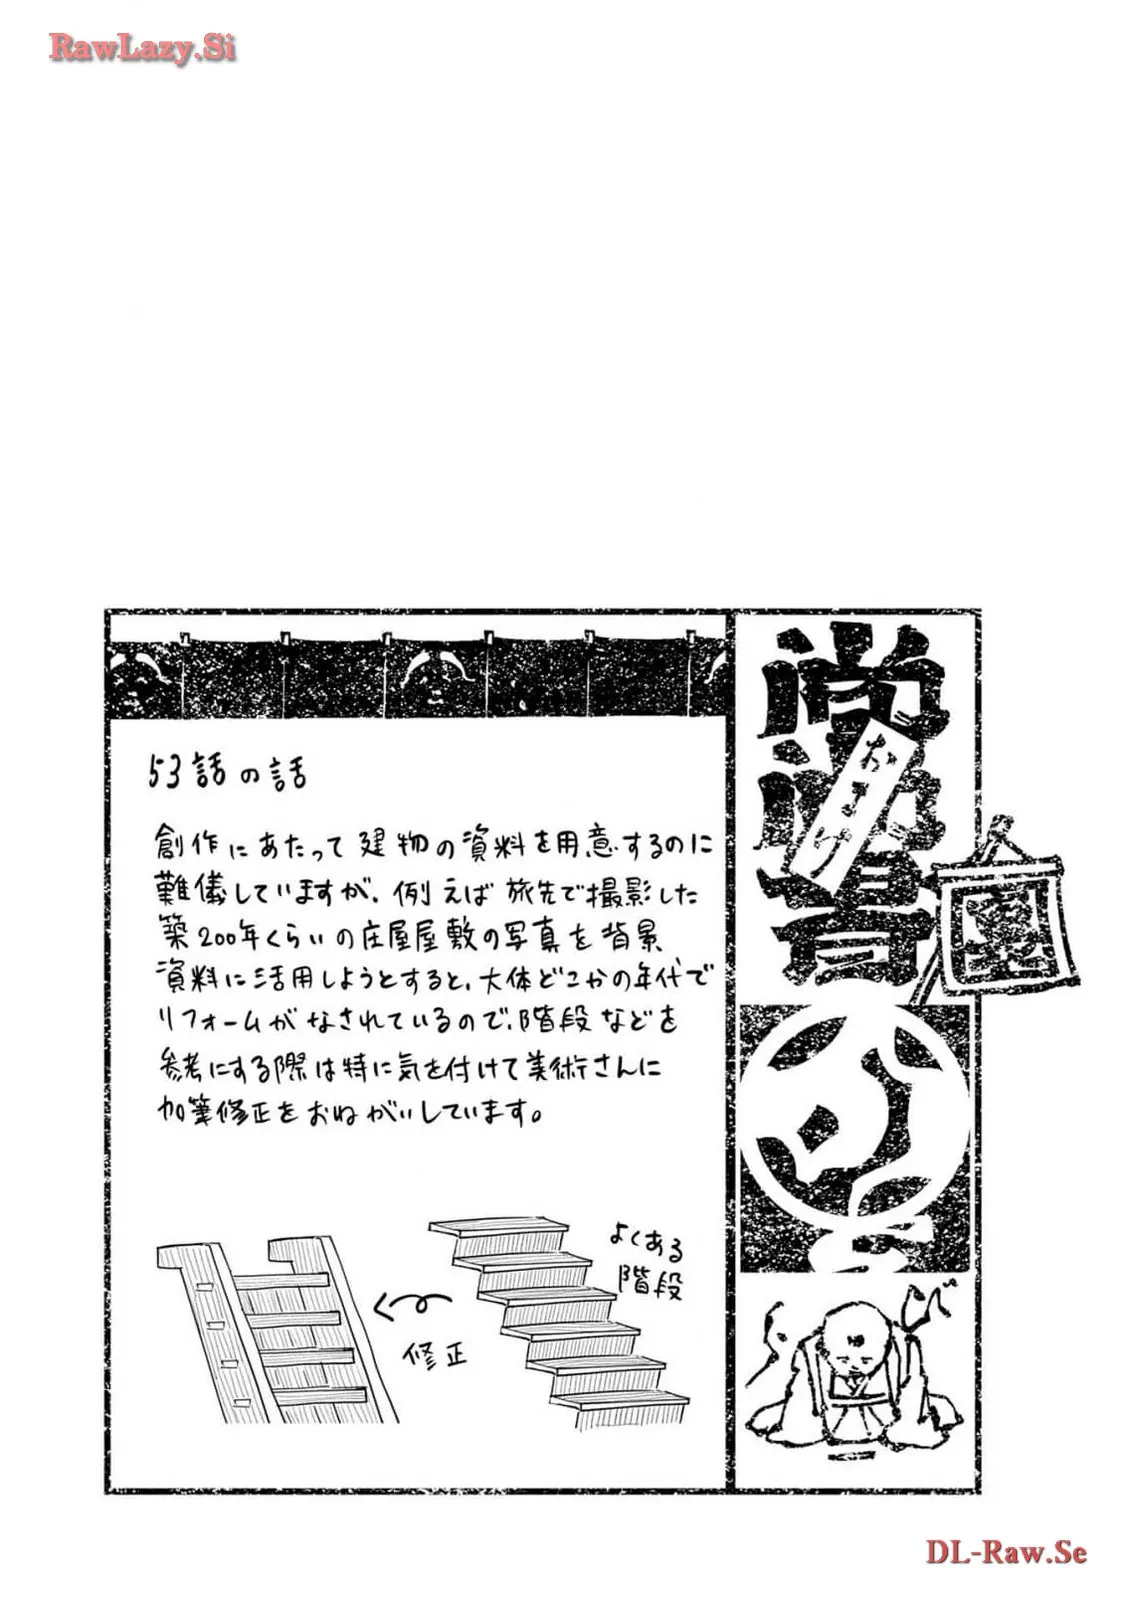 RawLazy.Si
おまけ
53話の話
創作にあたって建物の資料を用意するのに
難儀していますが、例えば旅先で撮影した
築200年くらいの庄屋屋敷の写真を背景
資料に活用しようとすると、大体どこかの年代で
リフォームがなされているので、階段などを
参考にする際は特に気を付けて美術さんに
加筆修正をおねがいしています。
よくある
階段
修正
DL-Raw.Se